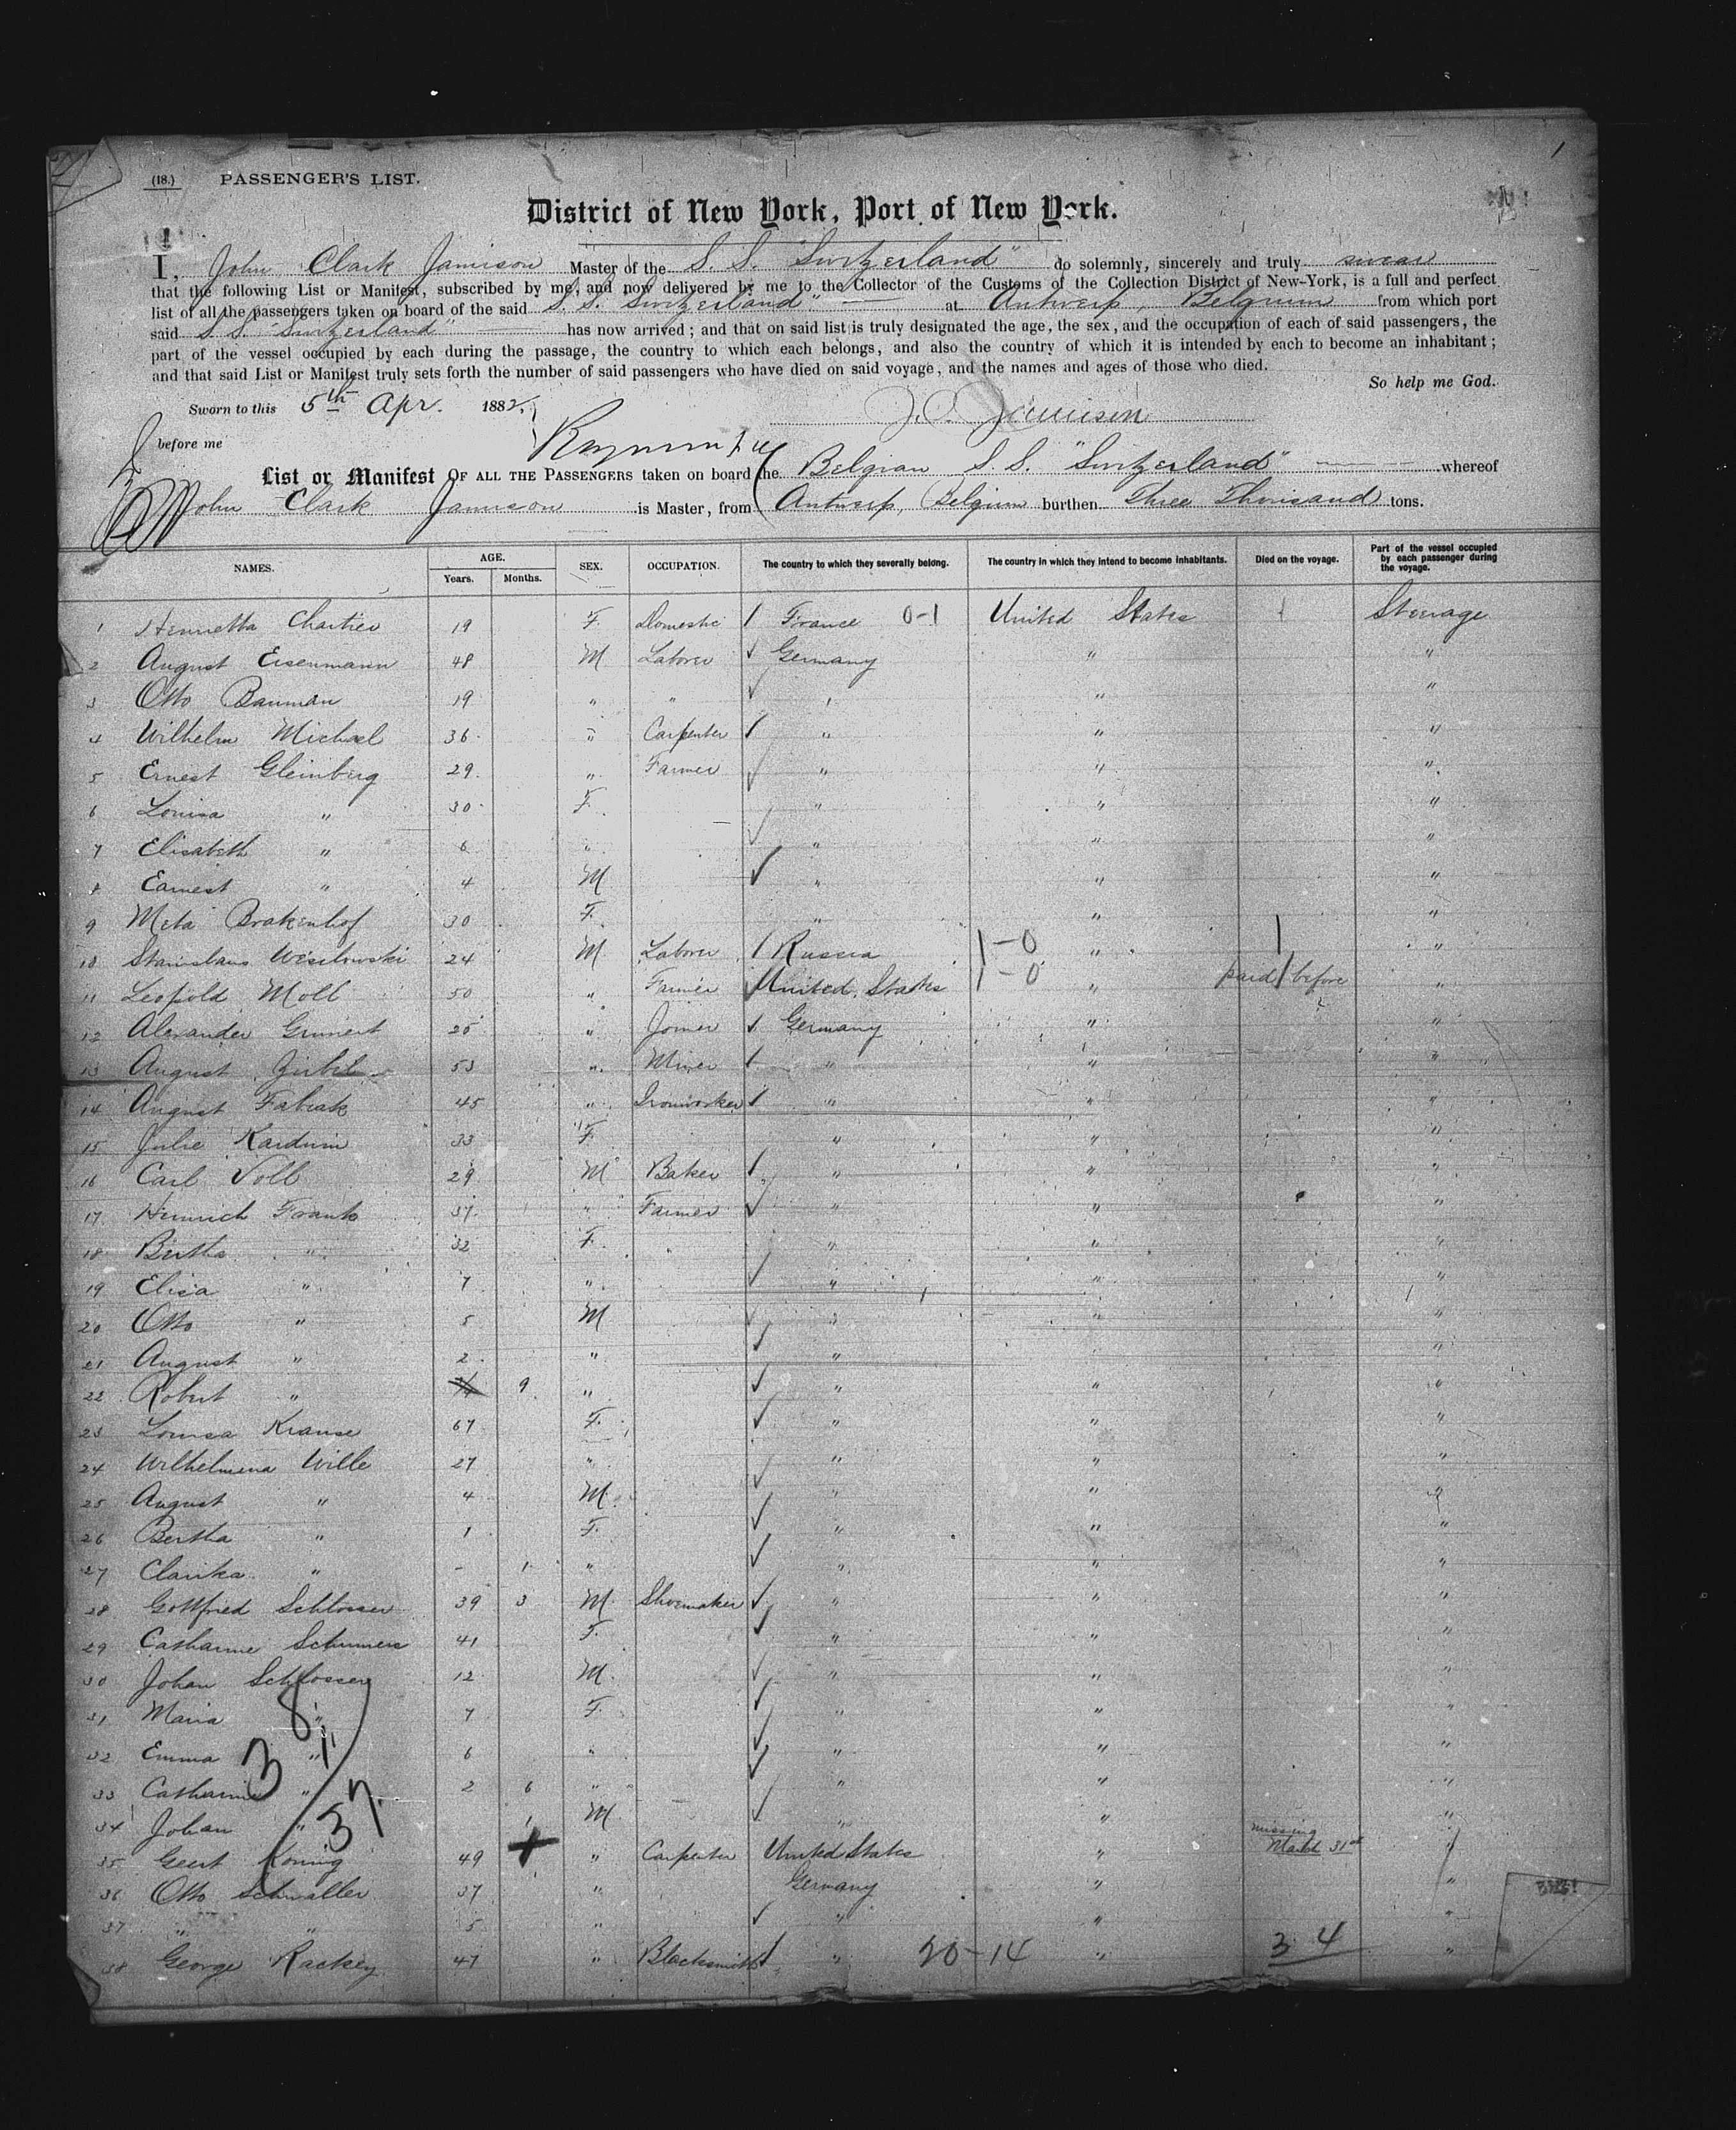 1
(18.) PASSENGER'S LIST.
District of New York, Port of New York.
I, John Clark Jamison Master of the S. S. "Switzerland" do solemnly, sincerely and truly swear
that the following List or Manifest, subscribed by me, and now delivered by me to the Collector of the Customs of the Collection District of New-York, is a full and perfect
list of all the passengers taken on board of the said S. S. "Switzerland" at Antwerp, Belgium from which port
said S.S. "Switzerland" has now arrived; and that on said list is truly designated the age, the sex, and the occupation of each of said passengers, the
part of the vessel occupied by each during the passage, the country to which each belongs, and also the country of which it is intended by each to become an inhabitant;
and that said List or Manifest truly sets forth the number of said passengers who have died on said voyage, and the names and ages of those who died.
So help me God.
Sworn to this 5th Apr. 1882. J. C. Jamison
before me
List or Manifest OF ALL THE PASSENGERS taken on board the Belgian S. S. "Switzerland" whereof
John Clark Jamison is Master, from Antwerp, Belgium burthen Three Thousand tons.
NAMES. AGE. Years. Months. SEX. OCCUPATION. The country to which they severally belong. The country in which they intend to become inhabitants. Died on the voyage. Part of the vessel occupied by each passenger during the voyage.
1 Henrietta Chartier 19 F. Domestic France 0-1 United States Steerage
2 August Eisenmann 48 M Laborer Germany " "
3 Otto Bauman 19 " " " " "
4 Wilhelm Michael 36 " Carpenter " " "
5 Ernest Gleinberg 29 " Farmer " " "
6 Louisa " 30 F. " " "
7 Elisabeth " 6 " " " "
8 Earnest " 4 M " " "
9 Meta Brakenhof 30 F. " " "
10 Stanislaus Wesilowski 24 M Laborer Russia 1-0 " "
11 Leopold Moll 50 " Farmer United States 1-0 " paid before "
12 Alexander Grunert 25 " Joiner Germany " "
13 August Zirbel 53 " Miner " " "
14 August Fabiak 45 " Ironworker " " "
15 Julie Karduin 33 F. " " "
16 Carl Voll 29 M Baker " " "
17 Heinrich Frank 37 " Farmer " " "
18 Bertha " 32 F. " " "
19 Elisa " 7 " " " "
20 Otto " 5 M " " "
21 August " 2 " " "
22 Robert " 9 " " " "
23 Louisa Krause 67 F. " " "
24 Wilhelmina Wille 27 " " " "
25 August " 4 M. " " "
26 Bertha " 1 F. " " "
27 Clarika " - 1 " " " "
28 Gottfried Schlosser 39 3 M Shoemaker " " "
29 Catharine 41 F. " " "
30 Johan Schlosser 12 M. " " "
31 Maria " 7 F. " " "
32 Emma " 6 " " " "
33 Catharine " 2 6 " " " "
34 Johan " 1 M " " "
35 Geert Koning 49 " Carpenter United States " missing March 31st "
36 Otto Schwaller 37 " Germany " "
37 " " 5 " " " "
38 George Rackey 47 " Blacksmith " 20-14 " 3 4 "
38/37